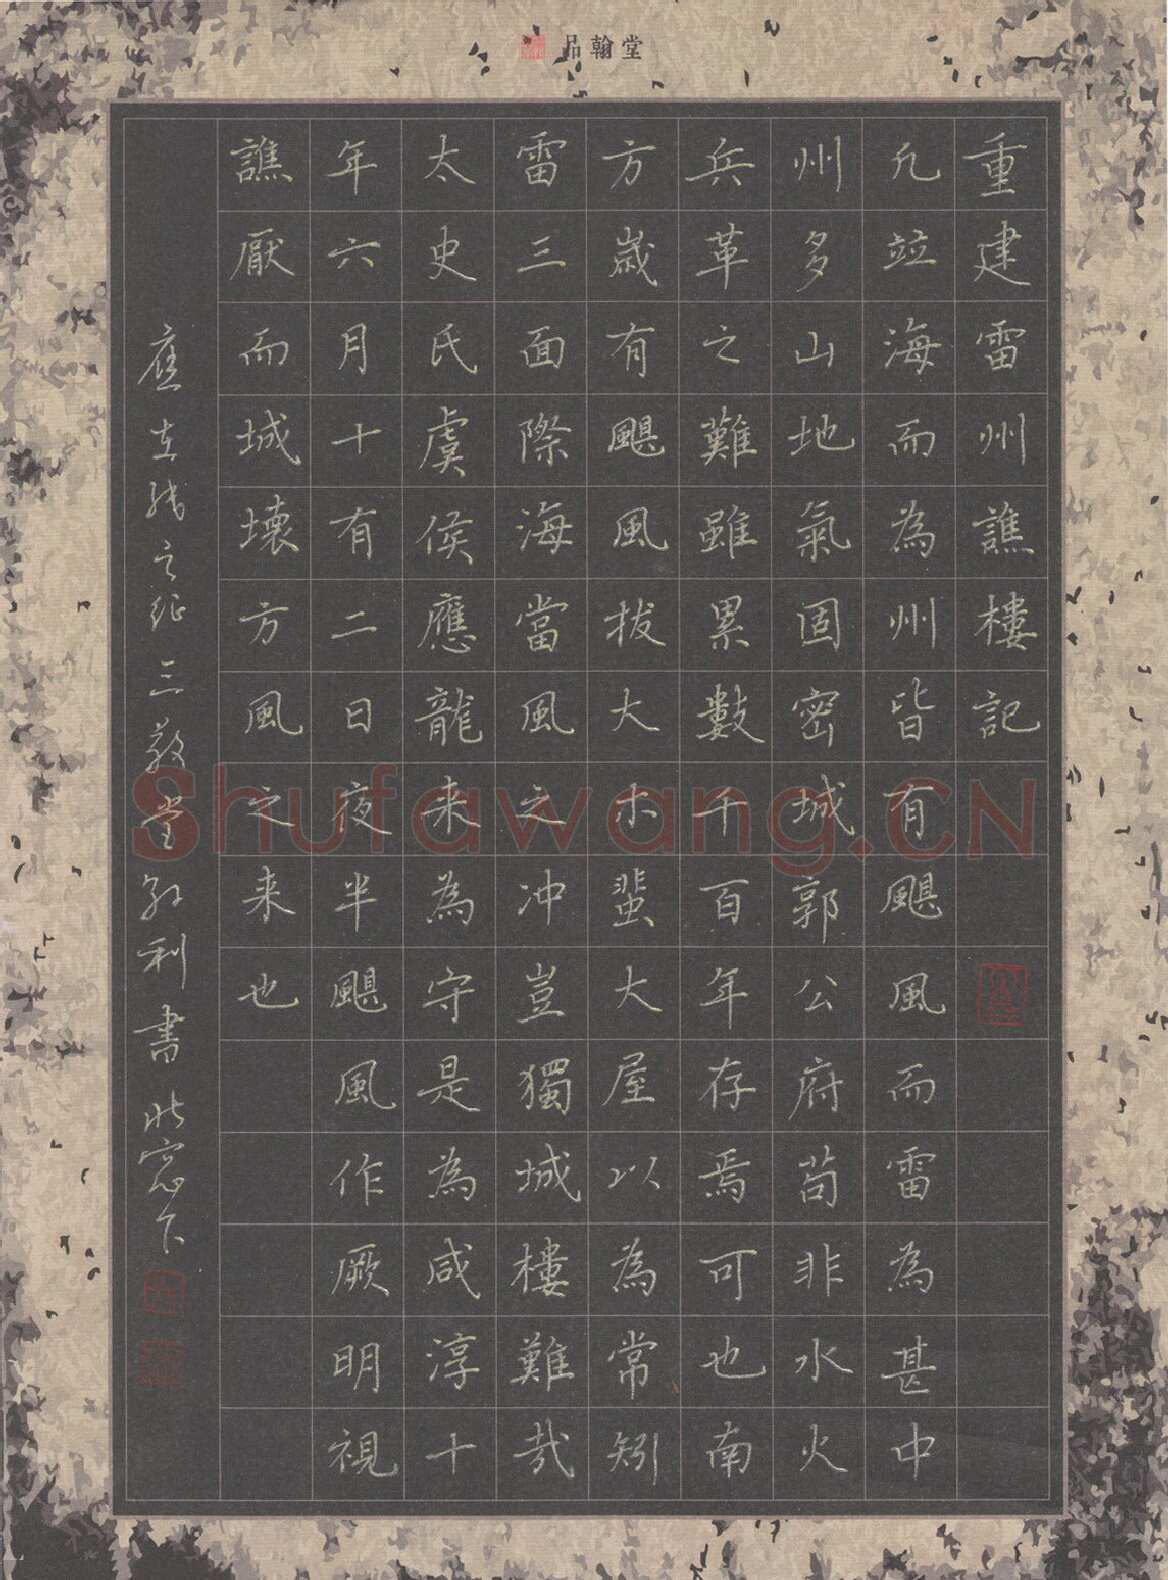 品翰堂
重建雷州譙樓記
凡竝海而為州皆有颶風而雷為甚中
州多山地氣固密城郭公府苟非水火
兵革之難雖累數千百年存焉可也南
方歲有颶風拔大木蜚大屋以為常矧
雷三面際海當風之冲豈獨城樓難哉
太史氏虞侯應龍来為守是為咸淳十
年六月十有二日夜半颶風作厥明視
譙厭而城壞方風之来也
三 堂 利書 窓下
Shufawang.CN